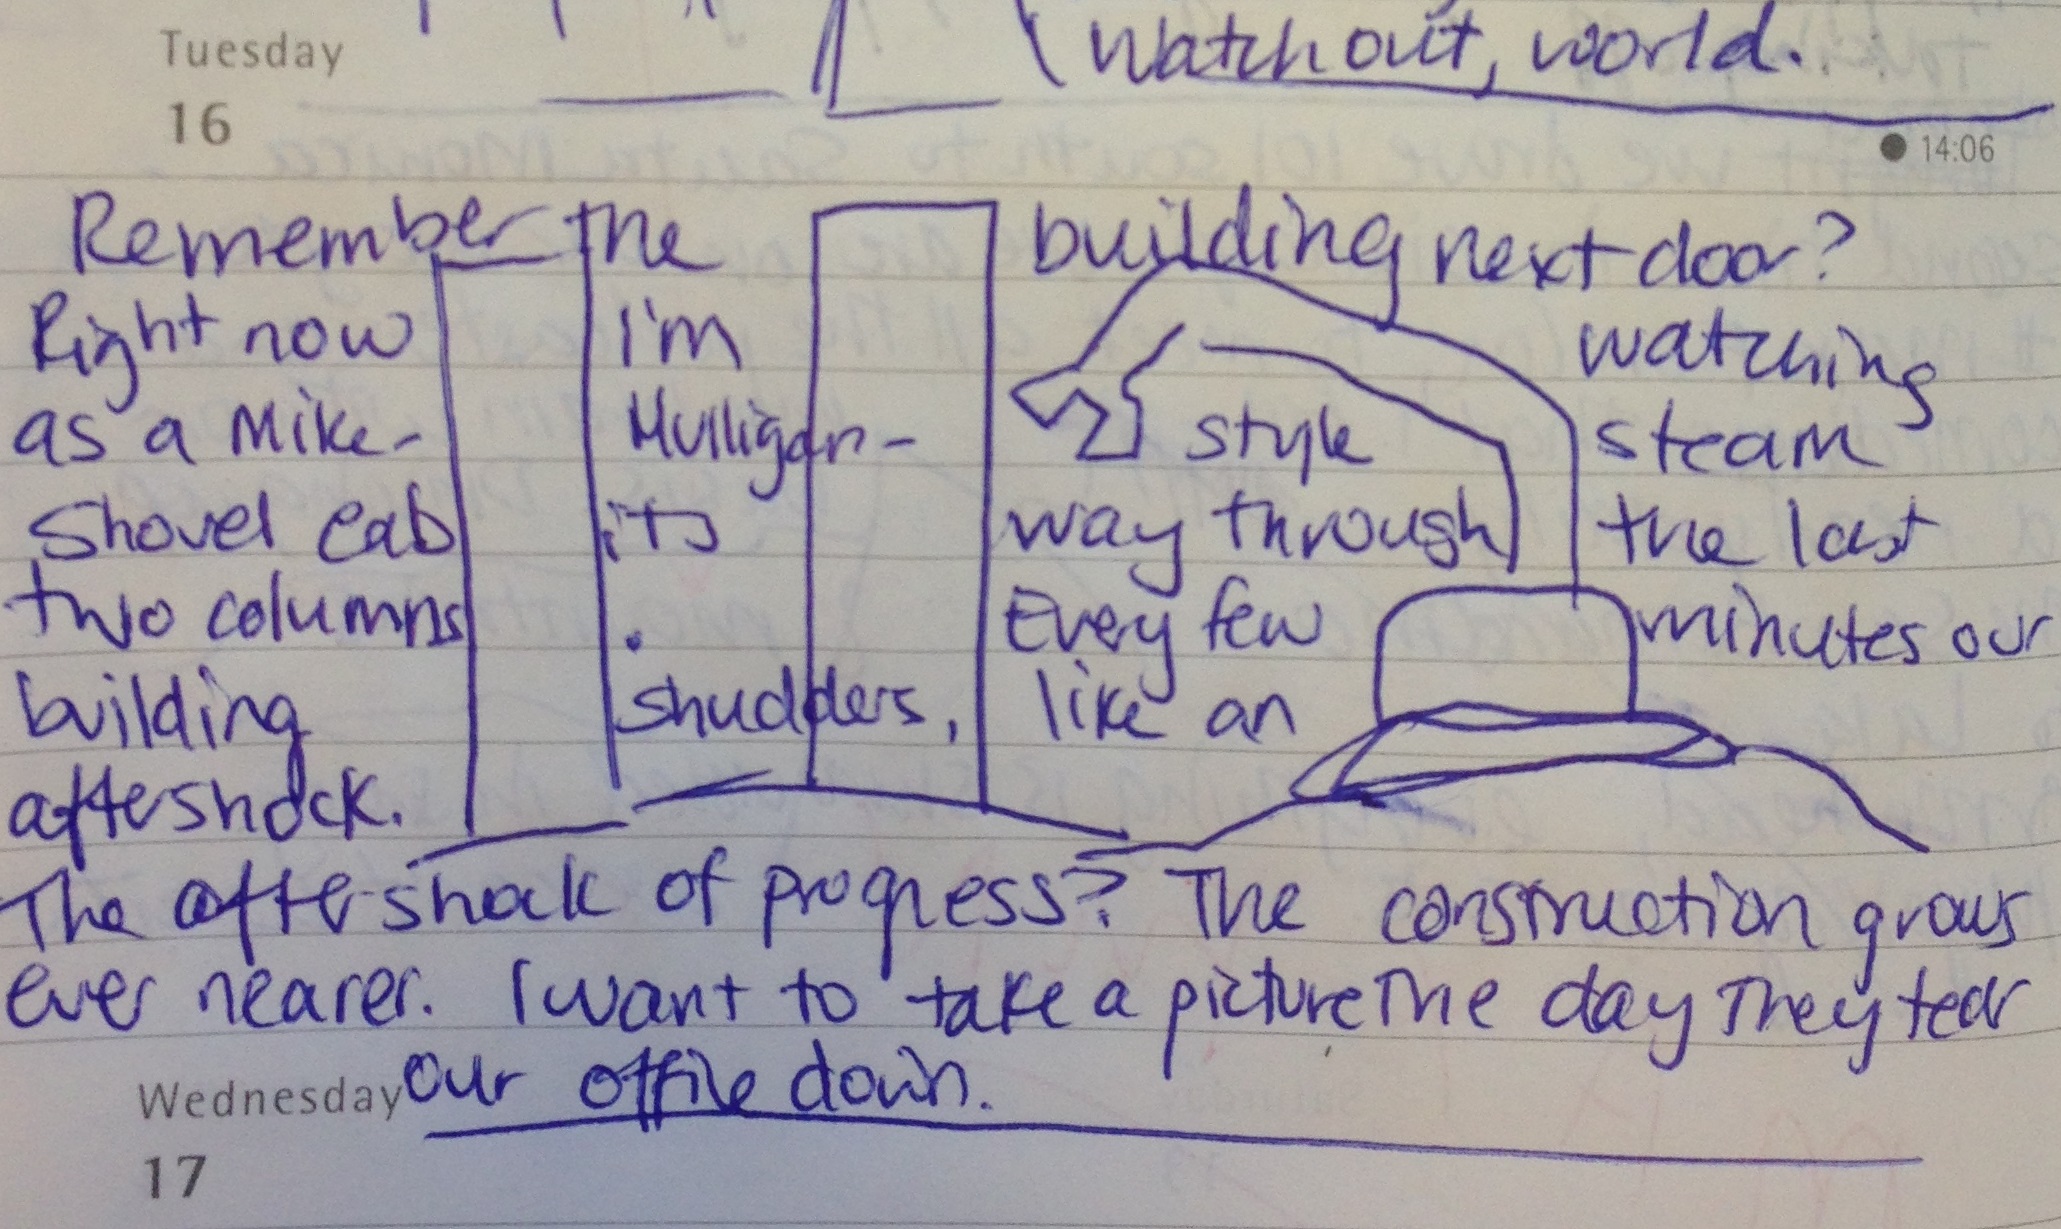 Watch out, world.
Tuesday
16
14:06
Remember the building next door?
Right now I'm watching
as a Mike- Mulligan- style steam
shovel eats its way through the last
two columns. Every few minutes our
building shudders, like an
aftershock.
The aftershock of progress? The construction grows
ever nearer. I want to take a picture the day they tear
our office down.
Wednesday
17